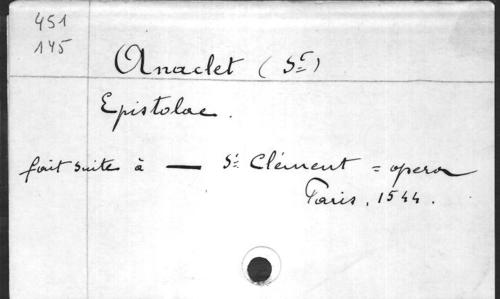 451
145
Anaclet (St)
Epistolae.
fait suite à — St Clément = opera
Paris, 1544.